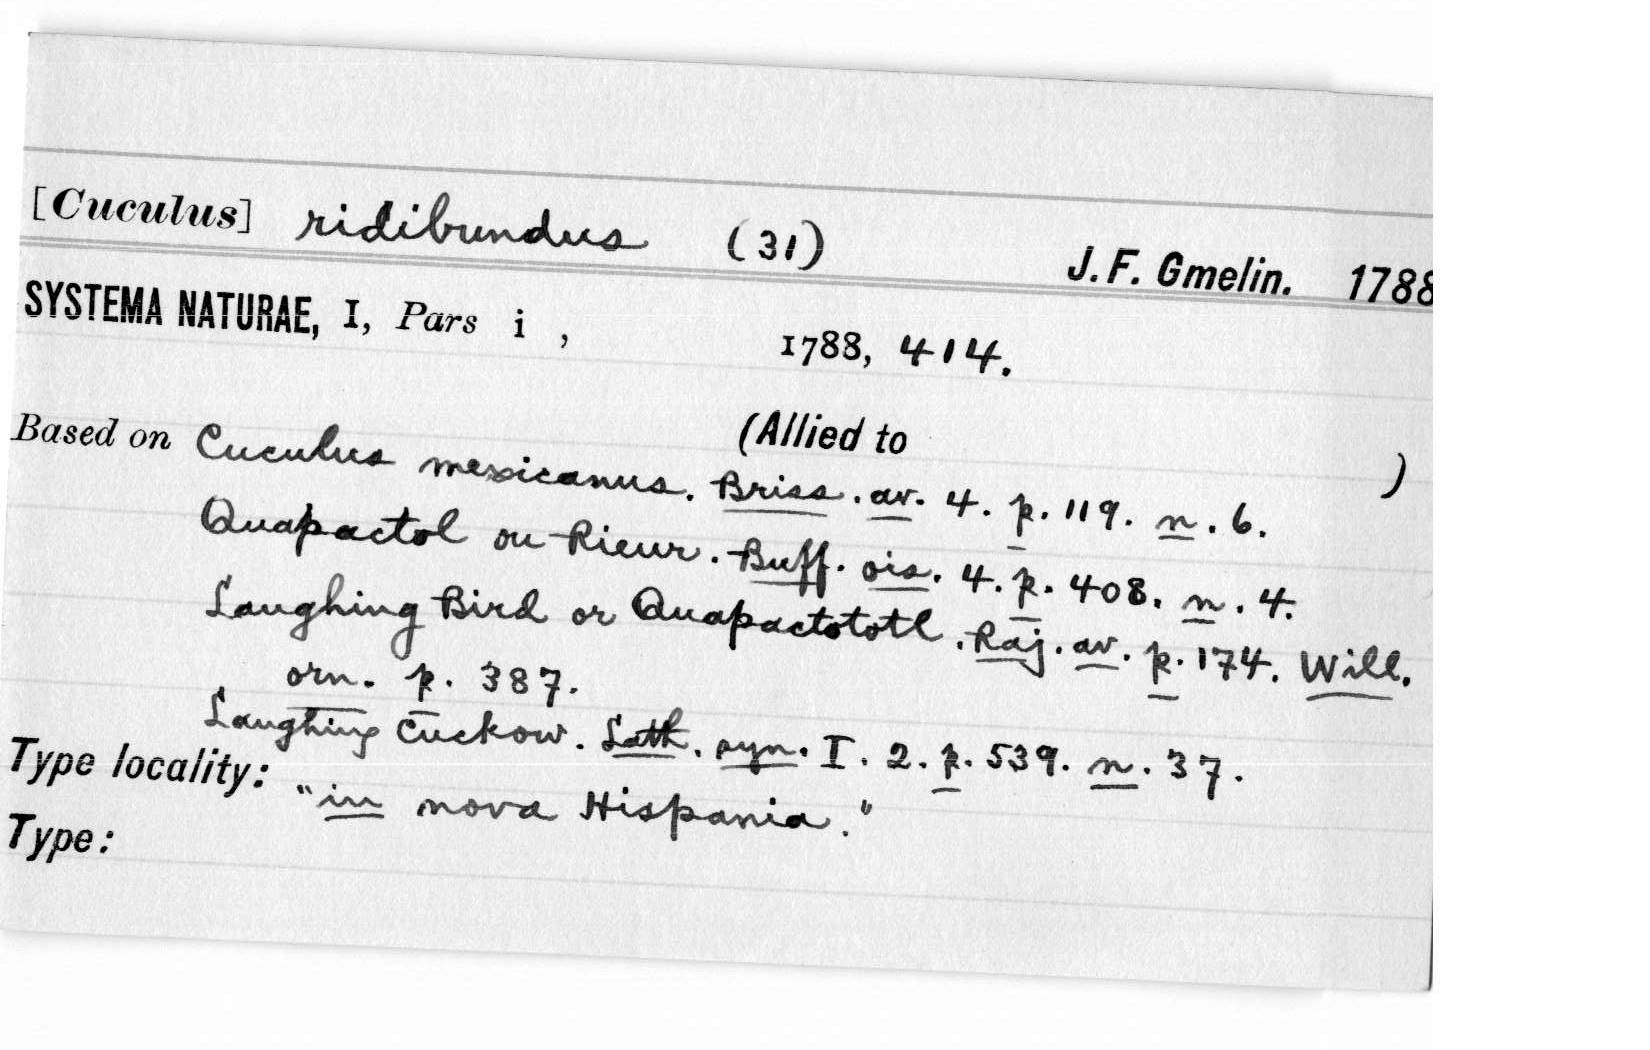 [Cuculus] ridibundus (31) J. F. Gmelin. 1788
SYSTEMA NATURAE, I, Pars i , 1788, 414.
(Allied to )
Based on Cuculus mexicanus. Briss. av. 4. p. 119. n. 6.
Quapactol ou Rieur. Buff. ois. 4. p. 408. n. 4.
Laughing Bird or Quapactototl. Raj. av. p. 174. Will.
orn. p. 387.
Laughing Cuckow. Lath. syn. I. 2. p. 539. n. 37.
Type locality: "in nova Hispania."
Type: